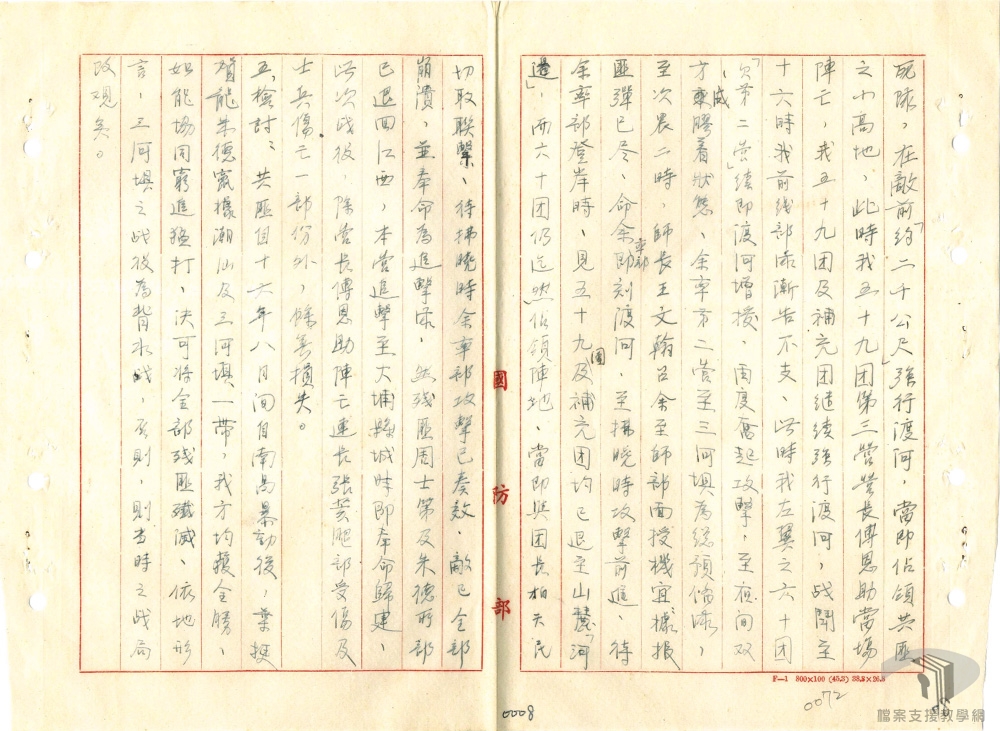 死隊，在敵前約「二千公尺」強行渡河，當即佔領共匪
之小高地，此時我五十九團第三營營長傅恩助當場
陣亡，我五十九團及補充團継续強行渡河，战鬥至
十六時我前线部隊漸告不支、此時我左翼之六十团
欠「第二营」续即渡河增援、周度奮起攻擊、至夜间双
方成膠着狀態、余率第二营至三河垻為総預備隊，
至次晨二時，師長王文翰召余至師部面授機宜，據报
匪彈已尽、命余率部即刻渡河，至拂晓時攻擊前進、待
余率部登岸時、見五十九团及補充团均已退至山麓「河
邊」，而六十团仍迄然佔領陣地、當即與团長柏天民
切取联擊、待拂晓時余率部攻擊已奏效、敵已全部
崩潰，並奉命為追擊隊，然残匪周士第及朱德所部
已退回江西，本营追擊至大埔縣城時即奉命歸建、
此次战役，除营長傅恩助陣亡連長張芸腿部受傷及
士兵傷亡一部份外，餘無損失。
五、檢討：共匪自十六年八月间自南昌暴動後，葉挺
賀龍朱德竄據潮汕及三河垻一带，我方均獲全勝、
如能场同窮追猛打，决可将全部残匪殲滅、依地形
言，三河垻之战役為背水战，否則，則当時之战局
改观矣。
國防部
F—1 800×100 (45.3) 38.8×26.8
0072
0008
檔案支援教學網